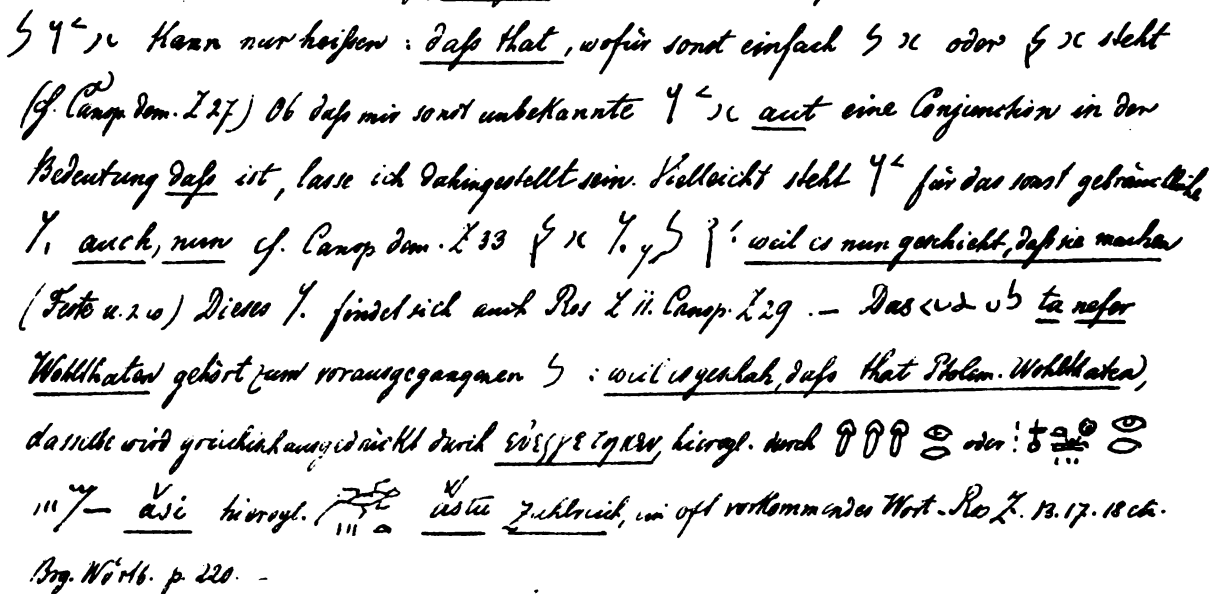 kann nur heißen: daß that, wofür sonst einfach oder steht
(cf. Canop. dem. Z 27) Ob daß mir sonst unbekannte aut eine Conjunction in der
Bedeutung daß ist, lasse ich dahingestellt sein. Vielleicht steht für das sonst gebräuchliche
auch, nun cf. Canop dem. Z 33 weil es nun geschieht, daß sie machen
(Feste u.s.w) Dieses findet sich auch Ros Z 11. Canop. Z 29 . — Das ta nefer
Wohlthaten gehört zum vorausgegangenen : weil es geschah, daß that Ptolem. Wohlthaten,
dasselbe wird griechisch ausgedrückt durch εὐεργέτηκεν, hierogl. durch oder :
hierogl. zahlreich, ein oft vorkommendes Wort - Ros Z. 13. 17. 18 etc.
Brg. Wörtb. p. 220. -